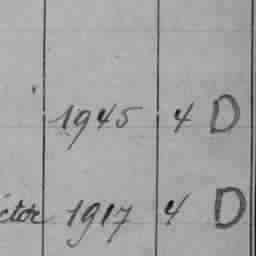 1945 4 D
ctor 1917 4 D